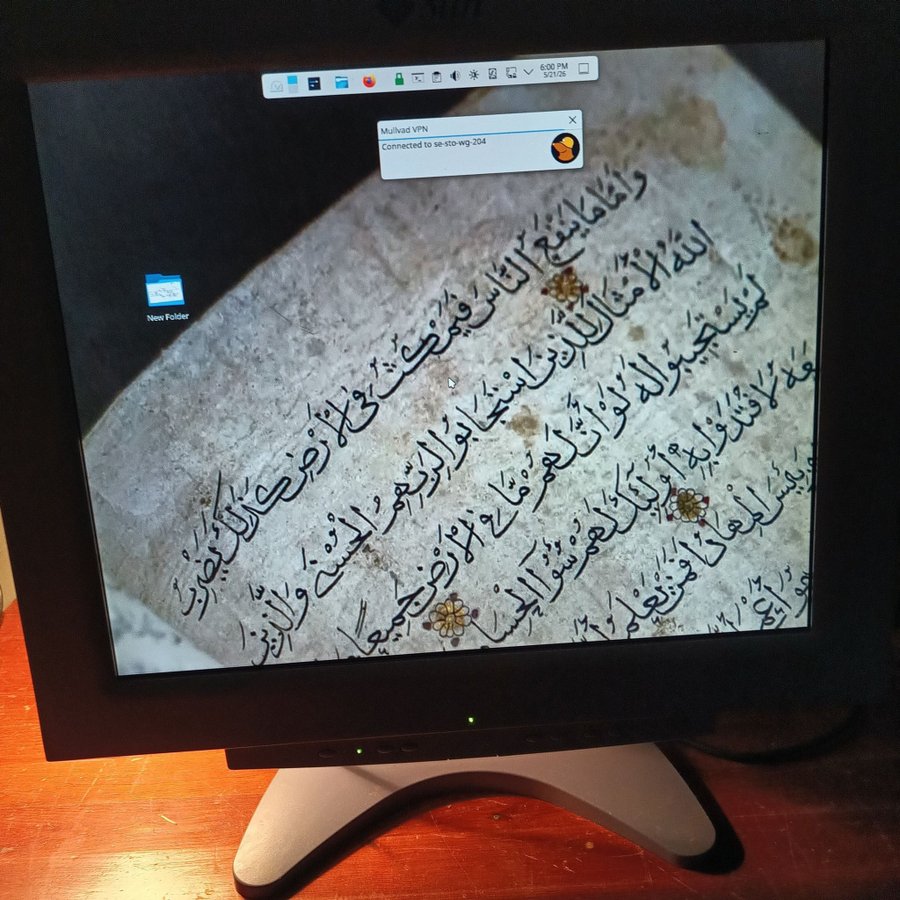 Sun
6:00 PM
5/21/26
Mullvad VPN
Connected to se-sto-wg-204
New Folder
وَأَمَّا مَا يَنفَعُ النَّاسَ فَيَمْكُثُ فِي الْأَرْضِ كَذَٰلِكَ يَضْرِبُ
اللَّهُ الْأَمْثَالَ لِلَّذِينَ اسْتَجَابُوا لِرَبِّهِمُ الْحُسْنَىٰ وَالَّذِينَ
لَمْ يَسْتَجِيبُوا لَهُ لَوْ أَنَّ لَهُم مَّا فِي الْأَرْضِ جَمِيعًا
مَعَهُ لَافْتَدَوْا بِهِ أُولَٰئِكَ لَهُمْ سُوءُ الْحِسَا
وَبِئْسَ الْمِهَادُ أَفَمَن يَعْلَمُ